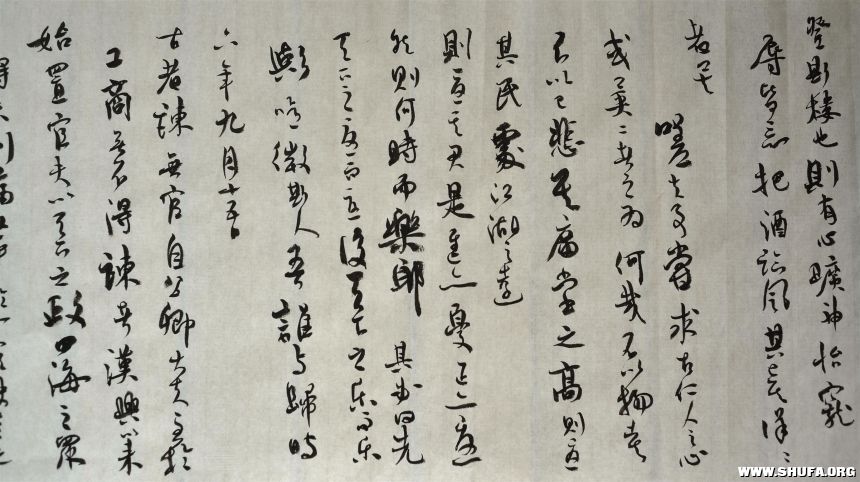 登斯楼也則有心曠神怡寵
辱皆忘把酒臨風其喜洋〻
者矣
嗟夫予嘗求古仁人之心
或異二者之为何哉不以物喜
不以己悲居庙堂之高則憂
其民處江湖之遠
則憂其君是進亦憂退亦憂
然則何時而樂耶 其必曰先
天下之憂而憂後天下之樂而乐
歟噫微斯人吾誰与歸時
六年九月十五日
古者諫無官自公卿大夫至於
工商無不得諫者漢興以来
始置官夫以天下之政四海之眾
得失利病
WWW.SHUFA.ORG